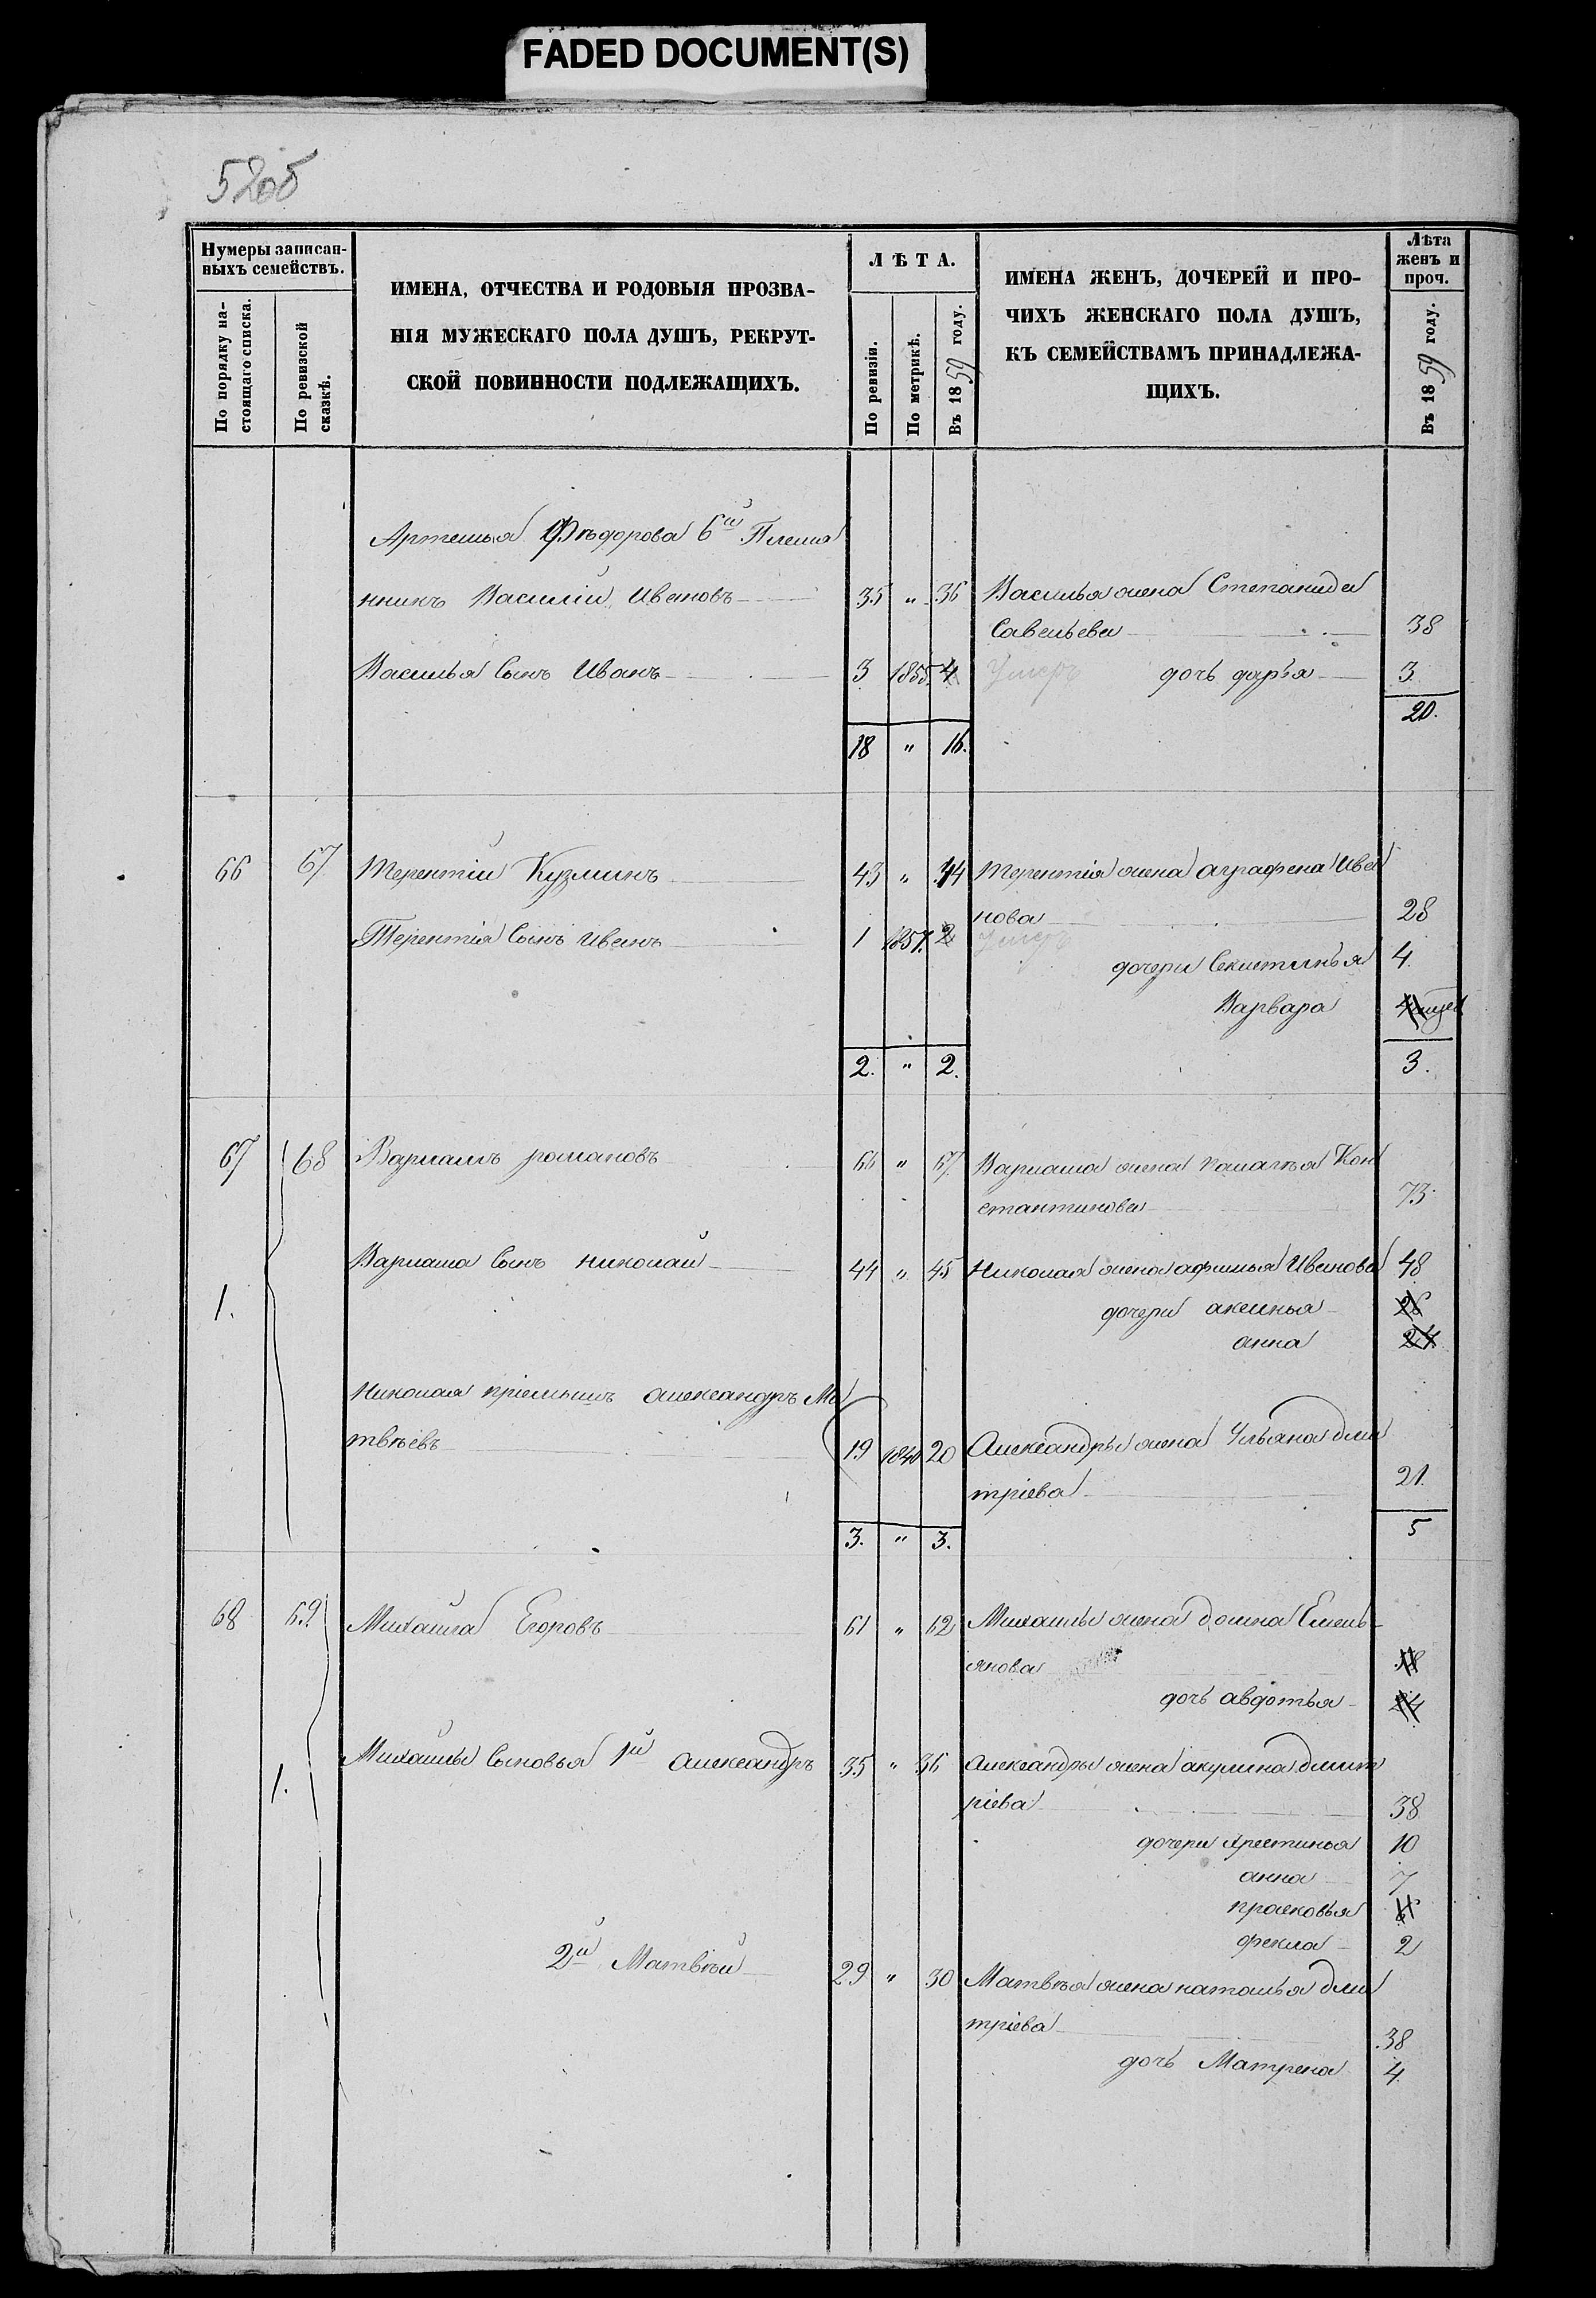 FADED DOCUMENT(S)
Нумеры записан-
ныхъ семействъ.
По порядку на-
стоящаго списка.
По ревизской
сказкѣ.
ИМЕНА, ОТЧЕСТВА И РОДОВЫЯ ПРОЗВА-
НІЯ МУЖЕСКАГО ПОЛА ДУШЪ, РЕКРУТ-
СКОЙ ПОВИННОСТИ ПОДЛЕЖАЩИХЪ.
ЛѢТА.
По ревизіи.
По метрикѣ.
Въ 1859 году.
ИМЕНА ЖЕНЪ, ДОЧЕРЕЙ И ПРО-
ЧИХЪ ЖЕНСКАГО ПОЛА ДУШЪ,
КЪ СЕМЕЙСТВАМЪ ПРИНАДЛЕЖА-
ЩИХЪ.
Лѣта
женъ и
проч.
Въ 1859 году.
Артемья Ѳѣдорова 6й Племя
нникъ Василій Ивановъ 35 „ 36 Василья жена Степанида
Савельева 38
Василья Сынъ Иванъ 3 1855. 4 Умеръ дочь дарья 3.
20.
18 „ 16.
66 67 Терентій Кузминъ 43 „ 44 Терентія жена аграфена Ива
нова 28
Терентія Сынъ иванъ 1 1857. 2 Умеръ
дочери Секлетинья 4.
Варвара
2. „ 2. 3.
67 68 Варламъ романовъ 66 „ 67 Варлама жена палагья Кон
стантинова 73
Варлама Сынъ николай 44 „ 45 Николая жена афимья Иванова 48
1. дочери аксинья 26
анна 24
Николая пріемышъ александръ Ма
твѣевъ 19 1840 20 Александры жена Ульяна дми
тріева 21.
3. „ 3. 5
68 69 Михайла Егоровъ 61 „ 62 Михайлы жена домна Емель-
янова 58
дочь авдотья 24
1. Михайлы Сыновья 1й александръ 35 „ 36 александры жена акулина дмит
ріева 38
дочери хрестинья 10
анна 7
прасковья
фекла 2
2й Матвѣй 29 „ 30 Матвѣя жена наталья дми
тріева 38
дочь Матрена 4.